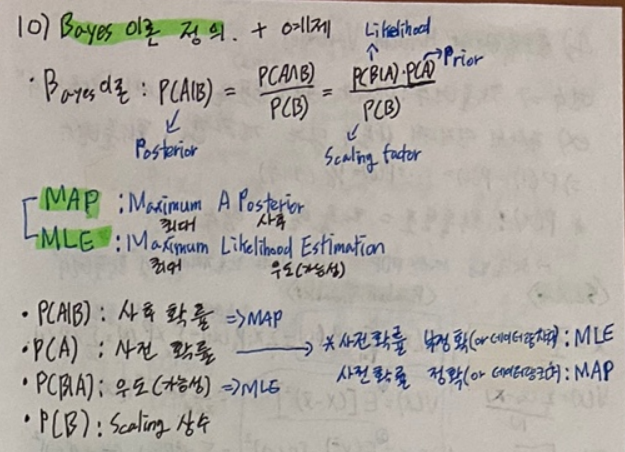 10) Bayes 이론 정의. + 예제
Likelihood
Prior
· Bayes이론 : P(A|B) = P(A∩B) / P(B) = P(B|A)·P(A) / P(B)
Posterior
Scaling factor
MAP : Maximum A Posterior
최대 사후
MLE : Maximum Likelihood Estimation
최대 우도(가능성)
· P(A|B) : 사후 확률 => MAP
· P(A) : 사전 확률 → * 사전확률 부정확(or 데이터량 : MLE
사전확률 정확(or 데이터량 : MAP
· P(B|A) : 우도(가능성) => MLE
· P(B) : Scaling 상수